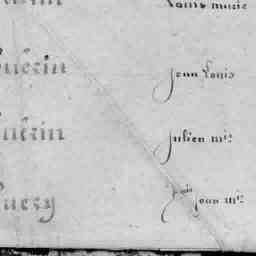 Louis marie
uérin
Jean Louis
uérin
Julien m^is
uery
Jean m^is